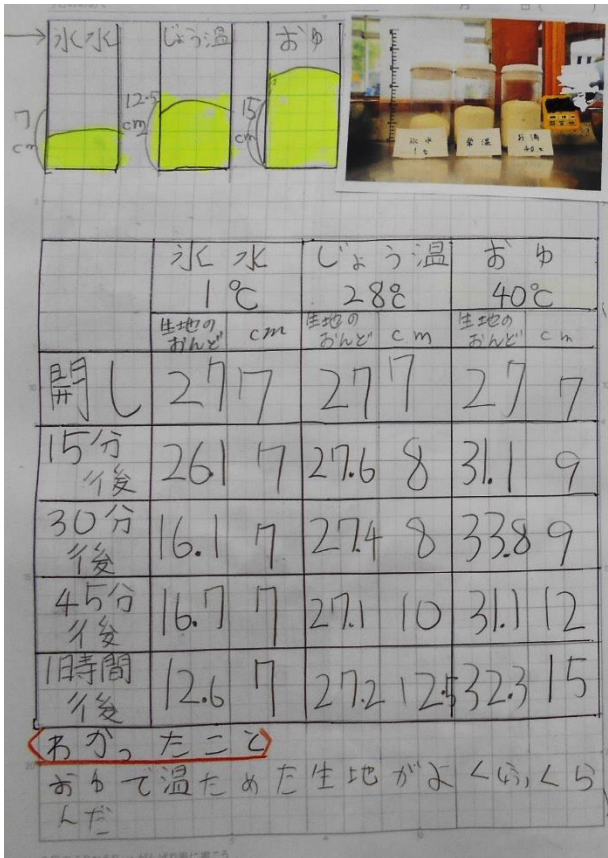 氷水 じょう温 おゆ
7cm 12.5cm 15cm
氷水 常温 お湯
1℃ 40℃
氷水 じょう温 おゆ
1℃ 28℃ 40℃
生地のおんど cm 生地のおんど cm 生地のおんど cm
開し 27 7 27 7 27 7
15分後 26.1 7 27.6 8 31.1 9
30分後 16.1 7 27.4 8 33.8 9
45分後 16.7 7 27.1 10 31.1 12
1時間後 12.6 7 27.2 12.5 32.3 15
<わかったこと>
おゆで温ためた生地がよくふくら
んだ